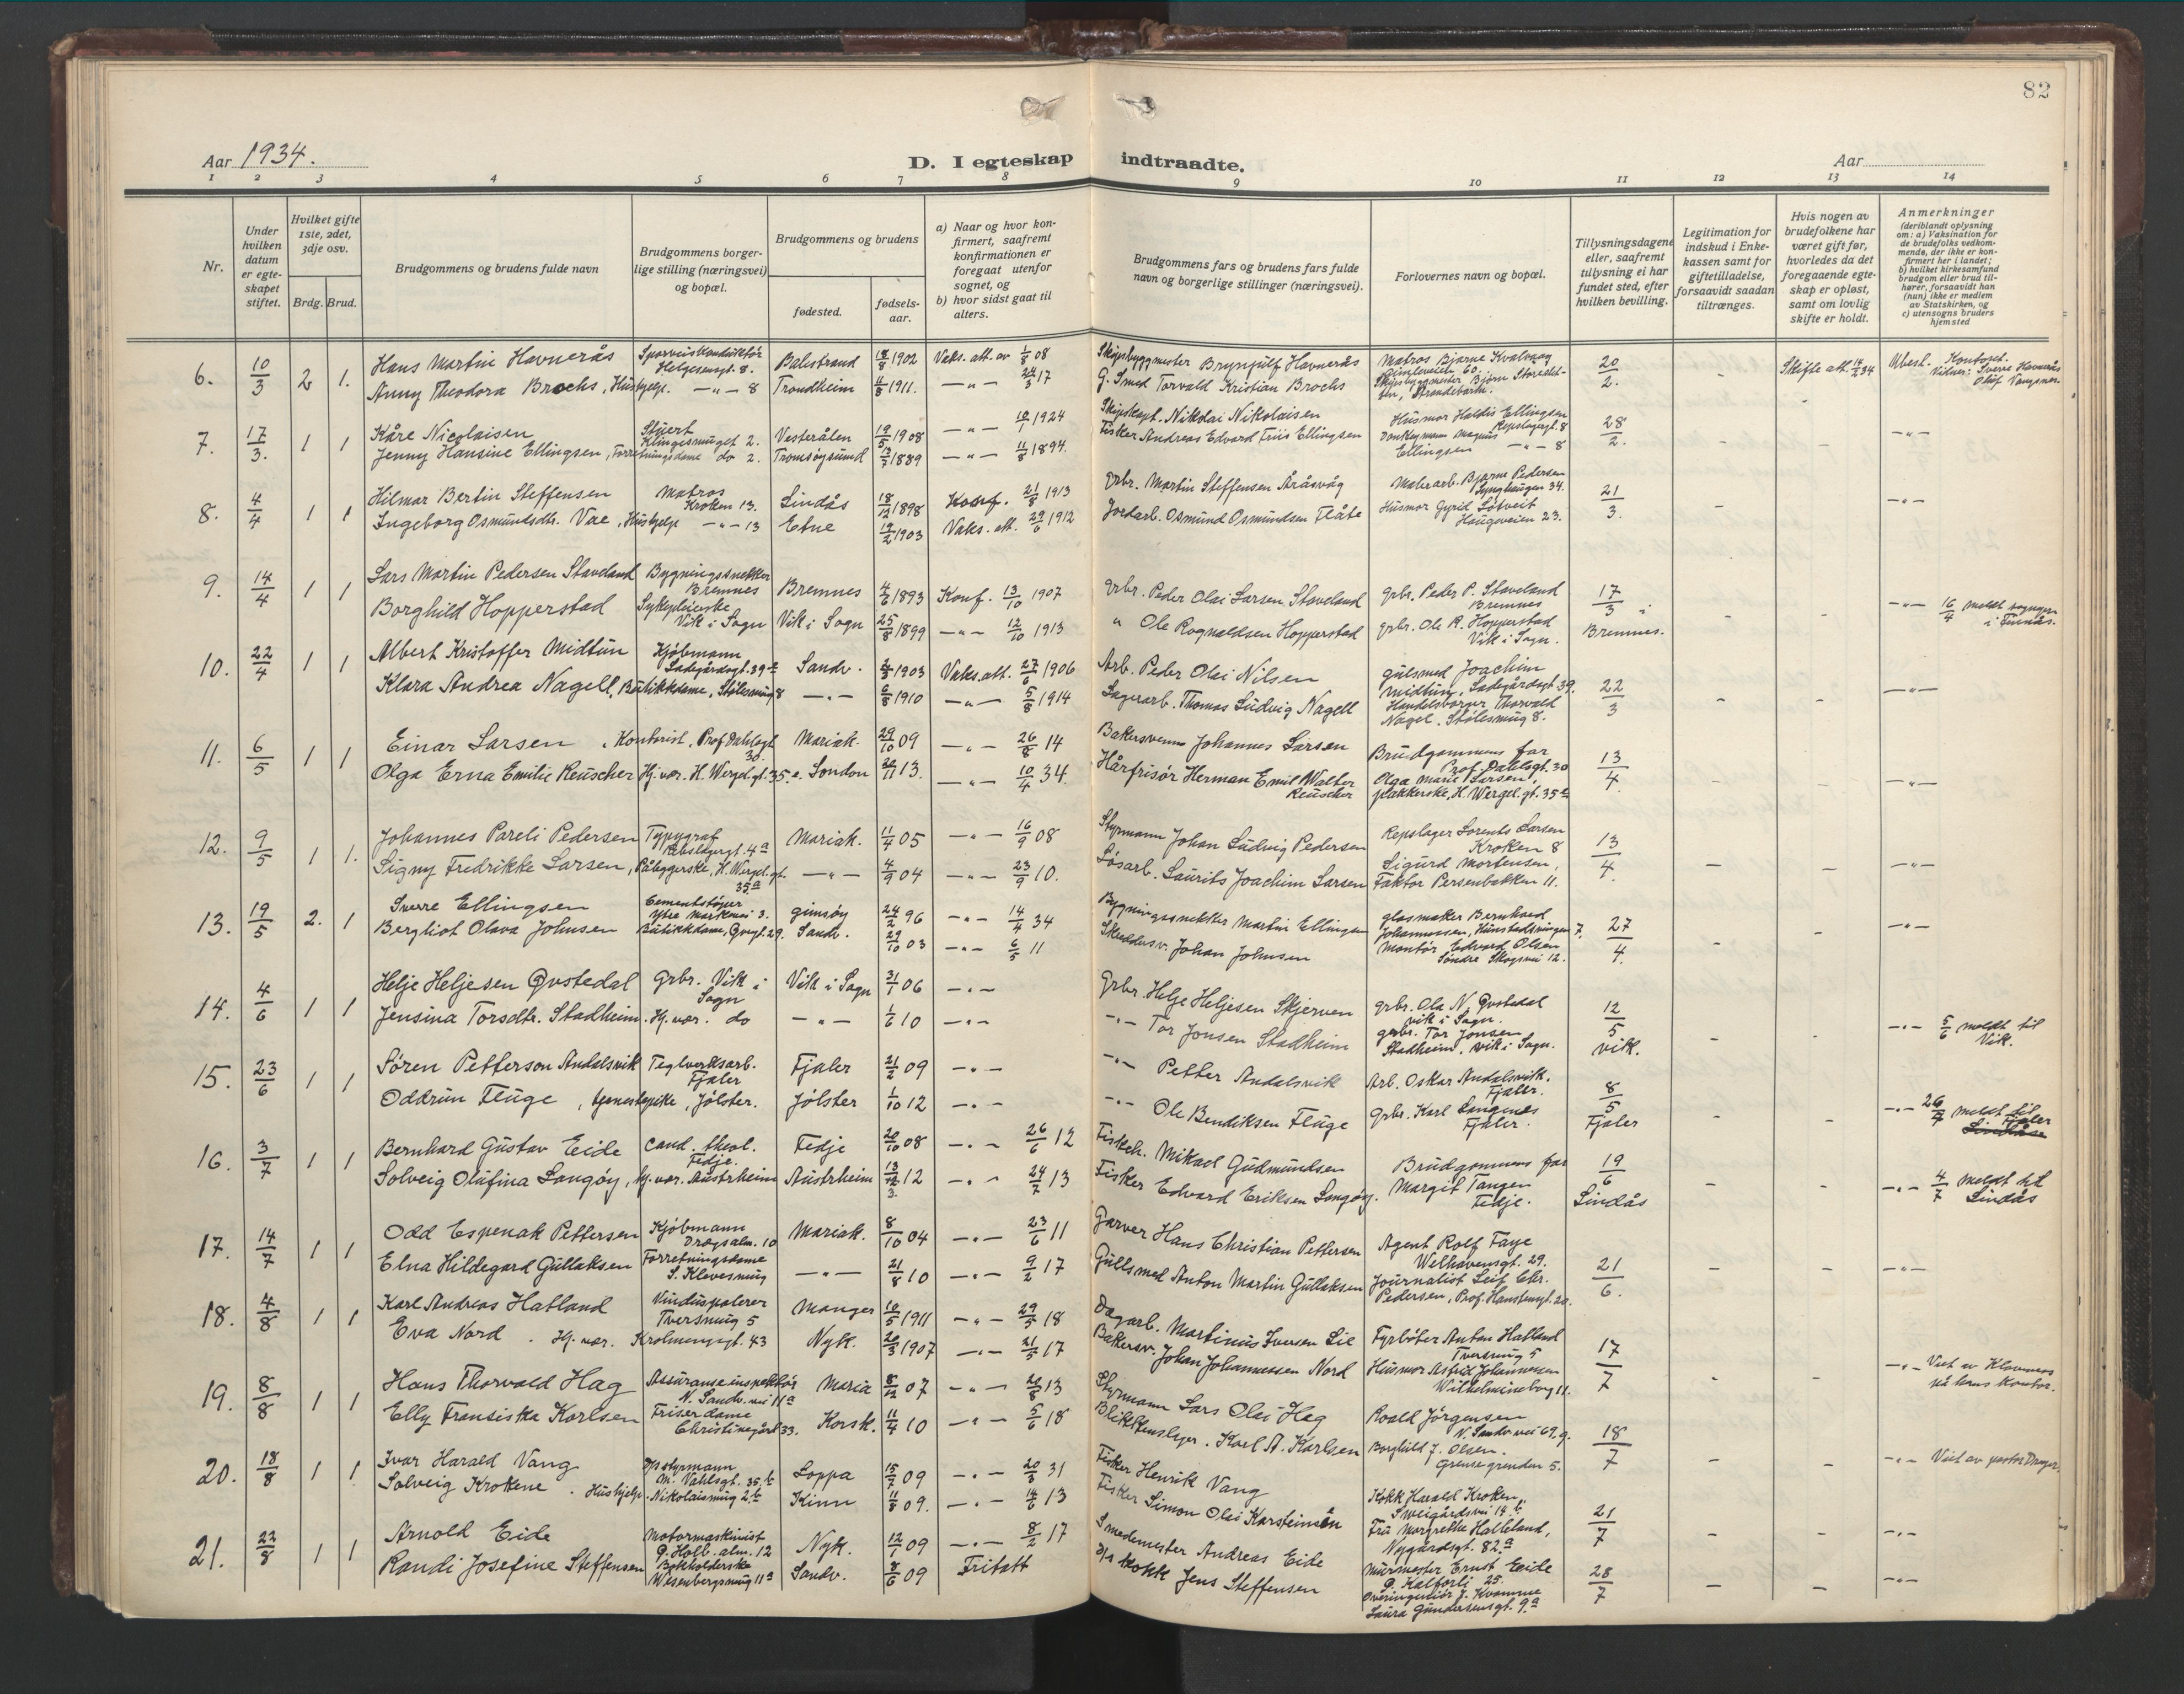 82
Aar 1934.
D. I egteskap indtraadte.
Aar
1 2 3 4 5 6 7 8 9 10 11 12 13 14
Nr.
Under hvilken datum er egteskapet stiftet.
Hvilket gifte 1ste, 2det, 3dje osv.
Brdg. Brud.
Brudgommens og brudens fulde navn
Brudgommens borgerlige stilling (næringsvei) og bopæl.
Brudgommens og brudens
fødested.
fødselsaar.
a) Naar og hvor konfirmert, saafremt konfirmationen er foregaat utenfor sognet, og
b) hvor sidst gaat til alters.
Brudgommens fars og brudens fars fulde navn og borgerlige stillinger (næringsvei).
Forlovernes navn og bopæl.
Tillysningsdagene eller, saafremt tillysning ei har fundet sted, efter hvilken bevilling.
Legitimation for indskud i Enkekassen samt for giftetilladelse, forsaavidt saadan tiltrænges.
Hvis nogen av brudefolkene har været gift før, hvorledes da det foregaaende egteskap er opløst, samt om lovlig skifte er holdt.
Anmerkninger (deriblandt oplysning om: a) Vaksination for de brudefolks vedkommende, der ikke er konfirmert her i landet; b) hvilket kirkesamfund brudgom eller brud tilhører, forsaavidt han (hun) ikke er medlem av Statskirken, og c) utensogns bruders hjemsted
6. 10/3 2 1. Hans Martin Havnerås Sporveiskonduktör Helgesensgt. 8. Balestrand 18/8 1902 Vaks. att. av 1/8 08 Skipsbyggmester Brynjulf Havnerås Matros Bjarne Kvalvaag 20/2. Skifte att. 14/2 34
Anny Theodora Brochs, Hushjelp. -"- 8 Trondheim 11/8 1911. -"- 24/3 17 G. Smed Torvald Kristian Brochs
7. 17/3. 1 1 Kåre Nicolaisen Stuert Klingesmuget 2. Vesterålen 19/5 1908 -"- 10/1 1924 Skipskapt. Nikolai Nikolaisen Husmor Haldis Ellingsen Repslagergt. 8 28/2.
Jenny Hansine Ellingsen, Forretningsdame do 2. Tromsøysund 13/7 1889 -"- 11/8 1894. Fisker Andreas Edvard Friis Ellingsen Donkeymann Magnus Ellingsen -"- 8
8. 4/4 1 1 Hilmar Bertin Steffensen Matros Kroken 13. Lindås 18/12 1898 Konf. 21/8 1913 Grbr. Martin Steffensen Åråsvåg Malerarb. Bjarne Pedersen Lynghaugen 34. 21/3.
Ingeborg Osmundsdtr. Vae, Hushjelp -"- 13 Etne 19/2 1903 Vaks. att. 29/6 1912 Jordarb. Osmund Osmundsen Flåte Husmor Gyrid Løtveit Haugeveien 23.
9. 14/4 1 1 Lars Martin Pedersen Staveland Bygningssnekker Bremnes Bremnes 4/6 1893 Konf. 13/10 1907 Grbr. Peder Olai Larsen Staveland Grbr. Peder P. Staveland Bremnes 17/3 i Bremnes.
Borghild Hopperstad Sykepleierske Vik i Sogn Vik i Sogn 25/8 1899 -"- 12/10 1913 " Ole Rognaldsen Hopperstad Grbr. Ole R. Hopperstad Vik i Sogn.
10. 22/4 1 1 Albert Kristoffer Midtun Kjøbmann Ladegårdsgt. 39a Sandv. 1903 Vaks. att. 27/6 1906 Arb. Peder Olai Nilsen Gulsmed Joachim Midtun, Ladegårdsgt. 39. 22/3
Klara Andrea Nagell, Butikkdame, Stølesmug 8 -"- 6/8 1910 -"- 5/8 1914 Lagerarb. Thomas Ludvig Nagell Handelsborger Thorvald Nagel, Stølesmug 8.
11. 6/5 1 1 Einar Larsen, Kontorist, Prof. Dahlsgt 30. Mariak. 29/10 09 -"- 26/8 14 Bakersvenn Johannes Larsen Brudgommens far Prof. Dahlsgt. 30 13/4.
Olga Erna Emilie Reuscher Hj. vær. H. Wergel. gt. 35. London 13. -"- 10/4 34. Hårfrisör Herman Emil Walter Reuscher Olga Marie Larsen, pakkerske, H. Wergel. gt. 35a
12. 9/5 1 1. Johannes Pareli Pedersen Typograf Repslagergt. 4a Mariak. 11/4 05 -"- 16/9 08 Styrmann Johan Ludvig Pedersen Repslager Lorents Larsen Kroken 8 13/4.
Signy Fredrikke Larsen, Påleggerske, H. Wergel. gt. 35a -"- 4/9 04 -"- 23/9 10. Løsarb. Laurits Joachim Larsen Sigurd Mortensen, Faktor Persenbakken 11.
13. 19/5 2. 1 Sverre Ellingsen Cementstøper Ytre Markevei 3. Gimsøy 24/2 96 -"- 14/4 34 Bygningssnekker Martin Ellingsen Glasmaker Bernhard Johannessen, 27/4.
Bergliot Olava Johnsen Butikkdame, 29. Sandv. 29/10 03 -"- 6/5 11 Johan Johnsen Montör Edvard Olsen Søndre Skogvei 12.
14. 4/6 1 1 Helje Heljesen Qvstedal Grbr. Vik i Sogn Vik i Sogn 31/1 06 -"- Grbr. Helje Heljesen Skjerven Grbr. Ola N. Qvstedal Vik i Sogn. 12/5 Vik.
Jensina Torsdtr. Stadheim. Hj. vær. do -"- 1/6 10 -"- -"- Tor Jonsen Stadheim Grbr. Tor Jonsen Stadheim, Vik i Sogn. 5/6 meldt til Vik.
15. 23/6 1 1 Søren Petterson Andalsvik Teglverksarb. Fjaler Fjaler 21/2 09 -"- -"- Petter Andalsvik Arb. Oskar Andalsvik. Fjaler. 8/5 Fjaler
Oddrun Fluge, tjenestepike, Jølster. Jølster 1/10 12 -"- -"- Ole Bendiksen Fluge Grbr. Karl Langenes Fjaler. meldt til Fjaler
16. 3/7 1 1 Bernhard Gustav Eide Cand. theol. Fedje. Fedje 20/10 08 -"- 26/6 12 Fiskeh. Mikael Gudmundsen Brudgommens far 19/6 Lindås
Solveig Olufina Langøy, Hj. vær. Austrheim Austrheim 13/12 12 -"- 24/7 13 Fisker Edvard Eriksen Langøy. Margit Tangen Fedje. 4/7 meldt til Lindås
17. 14/7 1 1 Odd Espenak Pettersen Kjøbmann Dragsalm. 10 Mariak. 8/10 04 -"- 23/6 11 Garver Hans Christian Pettersen Agent Rolf Faye Welhavensgt. 29. 21/6.
Elna Hildegard Gullaksen Forretningsdame S. Klovesmug -"- 21/8 10 -"- 9/2 17 Gullsmed Anton Martin Gullaksen Journalist Leif Chr. Pedersen, Prof. Hansteensgt. 20.
18. 4/8 1 1 Karl Andreas Hatland Vinduspolerer Tversmug 5 Manger 10/5 1911 -"- 29/5 18 Dagarb. Martinius Iversen Lie Fyrbøter Anton Hatland Tversmug 5 17/7
Eva Nord. Hj. vær. Krolmengsgt. 43 Nyk. 20/3 1907 -"- 21/5 17 Bakersv. Johan Johannessen Nord Husmor Astrid Johannessen Wilhelmineborg 11.
19. 8/8 1 1 Hans Thorvald Hag Assuranseinspektör N. Sandv. vei 11a Maria 8/12 07 -"- 20/8 13 Styrmann Lars Olai Hag Roald Jörgensen N. Sandv. vei 69. 18/7 Viet av Klaveness på hans kontor.
Elly Fransiska Karlsen Friserdame Christinegård 33. Korsk. 11/4 10 -"- 5/6 18 Blikkenslager. Karl A. Karlsen Borghild J. Olsen. Grensegrenden 5.
20. 18/8 1 1 Ivar Harald Vang Styrmann M. Vahlsgt. 35b Loppa 15/7 09 -"- 20/3 31 Fisker Henrik Vang Kokk Harald Kroken, 21/7 Viet av pastor
Solveig Krokene. Hushjelp. Nikolaismug 2b Kinn 11/8 09. -"- 14/6 13 Fisker Simon Olai Karsteinsen Fru Margrethe Halleland, Nygårdsgt. 82a
21. 22/8 1 1 Arnold Eide Motormaskinist Q. Holb. alm. 12 Nyk. 12/1 09 -"- 8/2 17 Smedemester Andreas Eide Murmester Ernst Eide Q. Kalfarli 25. 28/7
Randi Josefine Steffensen Bokholderske Wesenbergsmug 11a Sandv. 8/6 09 Fritatt Kokk Jens Steffensen J. Kvamme Laura Gundersensgt. 9a